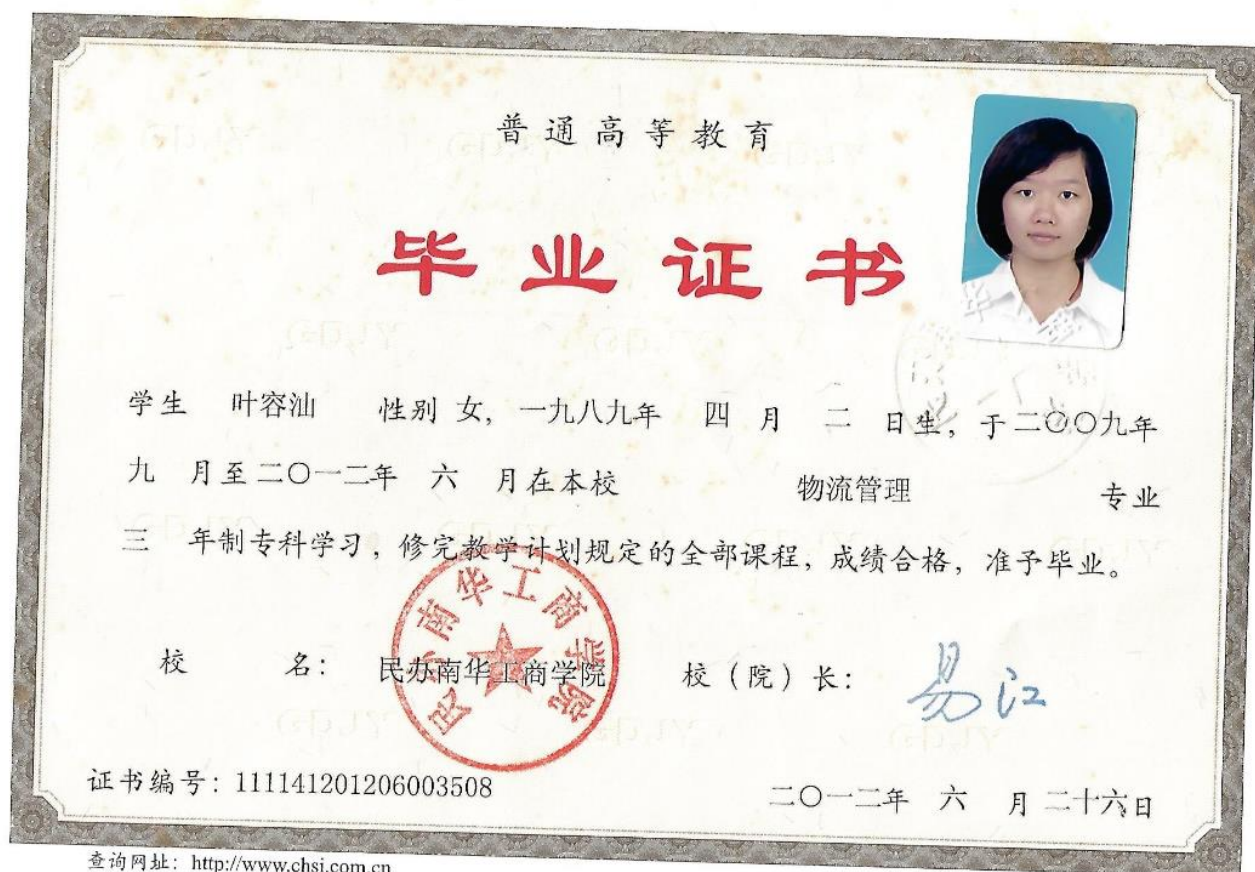 普通高等教育
毕业证书
学生 叶容汕 性别 女，一九八九年 四 月 二 日生，于二〇〇九年
九 月至二〇一二年 六 月在本校 物流管理 专业
三 年制专科学习，修完教学计划规定的全部课程，成绩合格，准予毕业。
校 名： 民办南华工商学院 校（院）长： 易江
民办南华工商学院
证书编号：111141201206003508 二〇一二年 六 月 二十六日
查询网址：http://www.chsi.com.cn